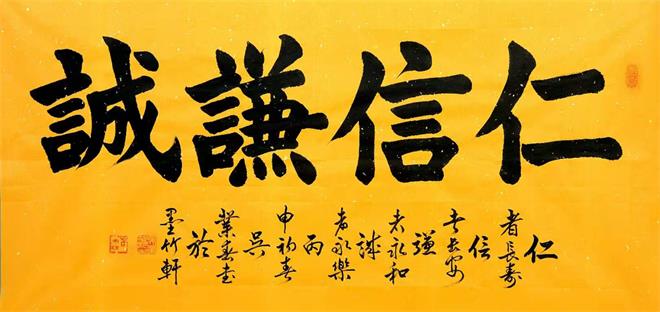 仁信謙誠
仁
者長壽
信
者長安
謙
者永和
誠
者永樂
丙
申初春
吳
業春書
於
墨竹軒